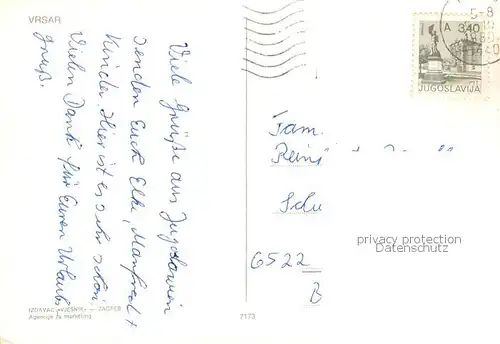 VRSAR
Viele Grüße aus Jugoslawien
senden Euch Elke, Manfred +
Kinder. Hier ist es sehr schön.
Vielen Dank für Euren Urlaubs
gruß.
IZDAVAČ »VJESNIK« — ZAGREB
Agencija za marketing
7173
5-8
A 3,40
JUGOSLAVIJA
Fam.
6522
privacy protection
Datenschutz